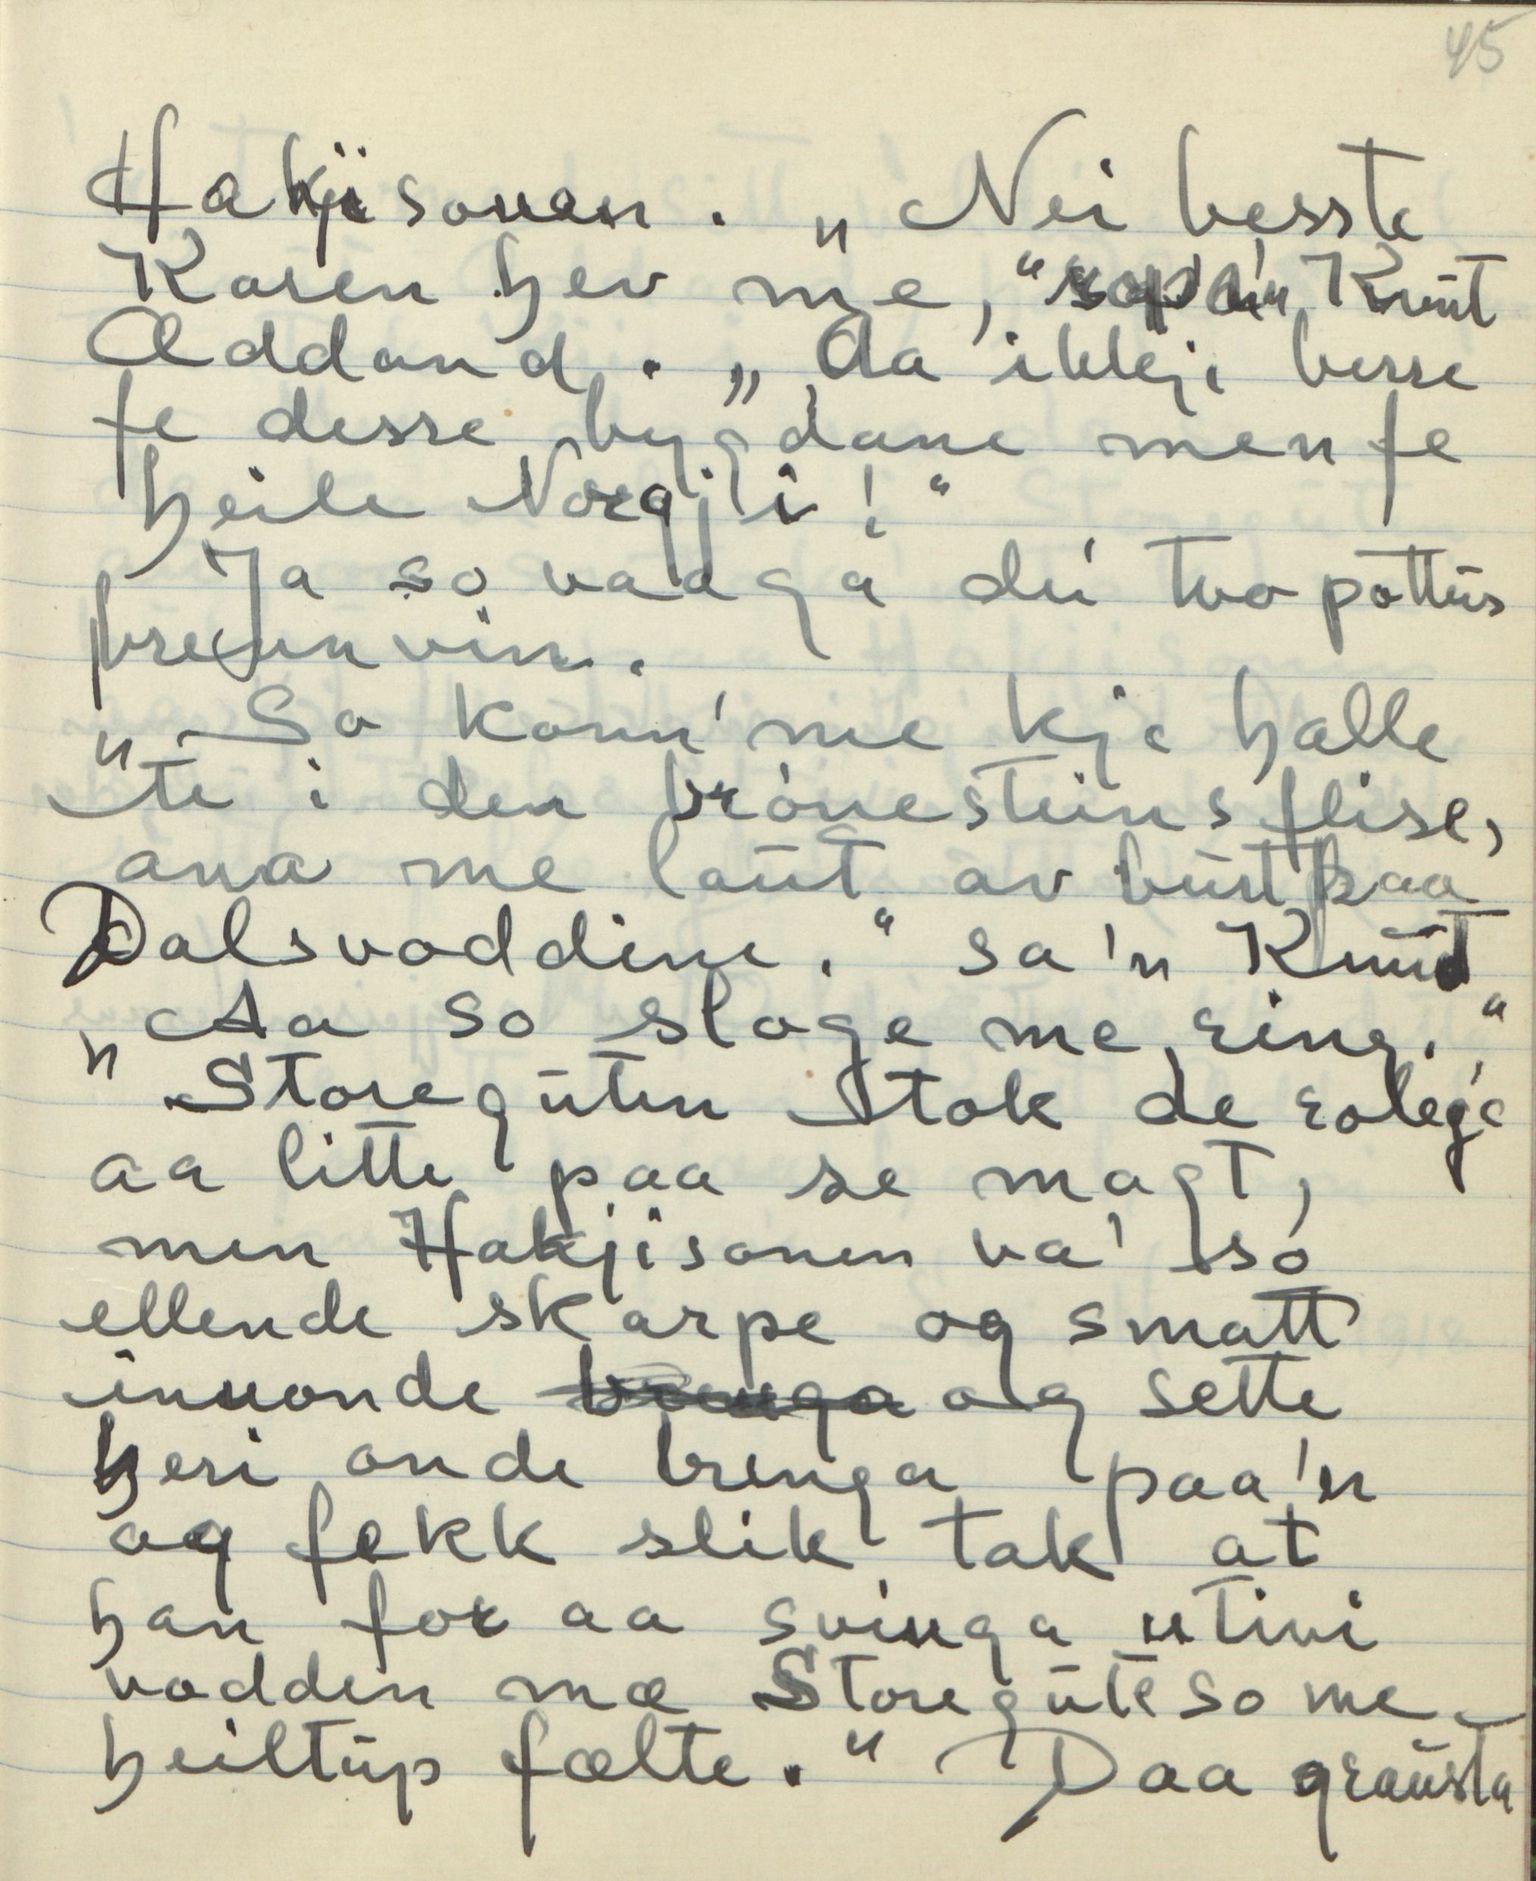 45
Hakjisonen. „Nei besste
Karen hev me," sa'n Knut
Oddand. „Aa ikkji berre
fe desse bygdane men fe
heile Norgji!"
Ja so vaaga dei två pottŭs
brennvin.
„So konn' me kje halle
te i den brónesteinsflise,
ana me laŭt av bŭrt paa
Dalsvoddene." sa'n Knŭt
„Aa so sloge me ring."
„Storegŭten tok de rolegé
aa litte paa se magt,
men Hakjisonen va' so
ellende skarpe og smatt
innonde og sette
heri onde bringa paa'n
og fekk slik tak at
han for aa svinga utivi
vodden mæ Storegŭtё so me
heiltŭp fælte." Daa graŭsta